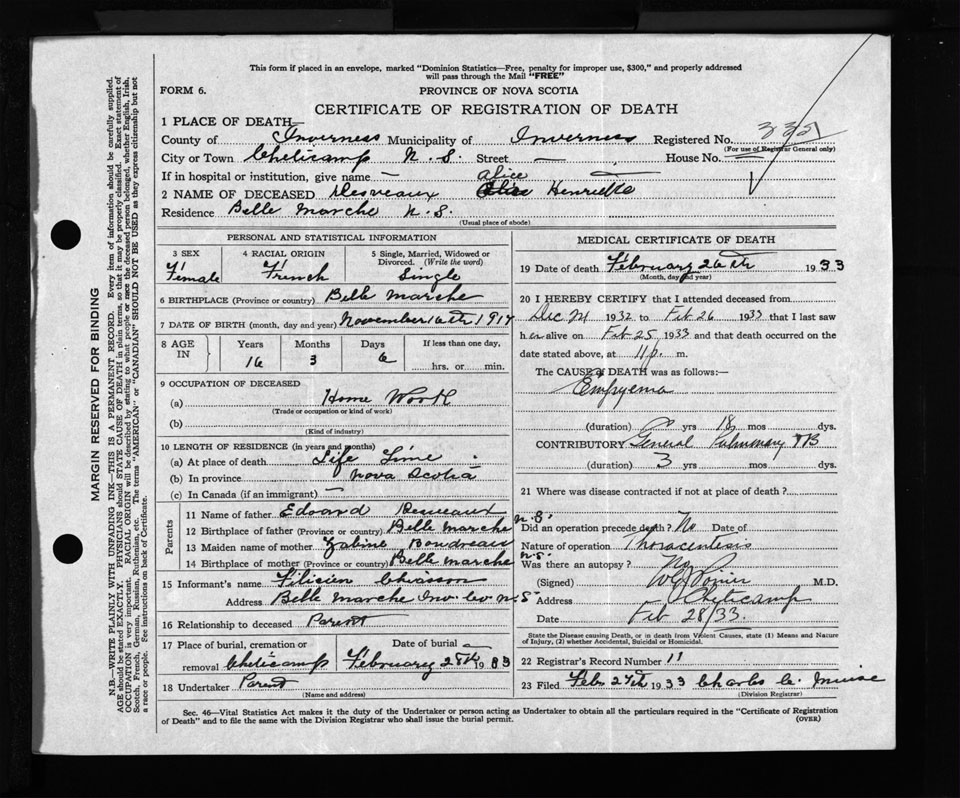 This form if placed in an envelope, marked "Dominion Statistics—Free, penalty for improper use, $300," and properly addressed
will pass through the Mail "FREE"
FORM 6.
PROVINCE OF NOVA SCOTIA
CERTIFICATE OF REGISTRATION OF DEATH
1 PLACE OF DEATH—
County of Inverness Municipality of Inverness Registered No.
(For use of Registrar General only)
City or Town Cheticamp N. S. Street — House No. —
If in hospital or institution, give name — Alice
2 NAME OF DECEASED Desveaux Henriette
Residence Belle Marche N. S.
(Usual place of abode)
PERSONAL AND STATISTICAL INFORMATION
3 SEX 4 RACIAL ORIGIN 5 Single, Married, Widowed or
Divorced. (Write the word)
Female French Single
6 BIRTHPLACE (Province or country) Belle Marche
7 DATE OF BIRTH (month, day and year) November 16th 191
8 AGE IN Years Months Days If less than one day,
16 3 6 hrs. or min.
9 OCCUPATION OF DECEASED
(a) Home Work
(Trade or occupation or kind of work)
(b)
(Kind of industry)
10 LENGTH OF RESIDENCE (in years and months)
(a) At place of death Life Time
(b) In province Nova Scotia
(c) In Canada (if an immigrant) —
Parents
11 Name of father Edoard Desveaux
12 Birthplace of father (Province or country) Belle Marche N.S.
13 Maiden name of mother Boudreau
14 Birthplace of mother (Province or country) Belle Marche N.S.
15 Informant's name Filicien Chiasson
Address Belle Marche Inv. Co. N.S
16 Relationship to deceased Parent
17 Place of burial, cremation or Date of burial
removal Cheticamp February 28th 1933
18 Undertaker Parent
(Name and address)
MEDICAL CERTIFICATE OF DEATH
19 Date of death February 26th 1933
(Month, day and year)
20 I HEREBY CERTIFY that I attended deceased from
Dec 1932 to Feb 26 1933 that I last saw
h er alive on Feb 25 1933 and that death occurred on the
date stated above, at 11 p. m.
The CAUSE OF DEATH was as follows:—
Empyema
(duration) yrs 18 mos dys.
CONTRIBUTORY General Pulmonary TB
(duration) 3 yrs mos dys.
21 Where was disease contracted if not at place of death?
Did an operation precede death? No Date of
Nature of operation Thoracentesis
Was there an autopsy? No
(Signed) M.D.
Address Cheticamp
Date Feb 28/33.
State the Disease causing Death, or in death from Violent Causes, state (1) Means and Nature
of Injury, (2) whether Accidental, Suicidal or Homicidal.
22 Registrar's Record Number 11
23 Filed Feb. 27th 1933 Charles C. Muise
(Division Registrar)
Sec. 46—Vital Statistics Act makes it the duty of the Undertaker or person acting as Undertaker to obtain all the particulars required in the "Certificate of Registration
of Death" and to file the same with the Division Registrar who shall issue the burial permit.
(OVER)
MARGIN RESERVED FOR BINDING
N.B.—WRITE PLAINLY WITH UNFADING INK—THIS IS A PERMANENT RECORD. Every item of information should be carefully supplied.
AGE should be stated EXACTLY. PHYSICIANS should STATE CAUSE OF DEATH in plain terms, so that it may be properly classified. Exact statement of
OCCUPATION is very important. RACIAL ORIGIN will be described by stating to what people or race the deceased person belonged, whether English, Irish,
Scotch, French, German, Russian, Ruthenian, etc. The terms "AMERICAN" or "CANADIAN" SHOULD NOT BE USED as they express citizenship but not
a race or people. See instructions on back of Certificate.